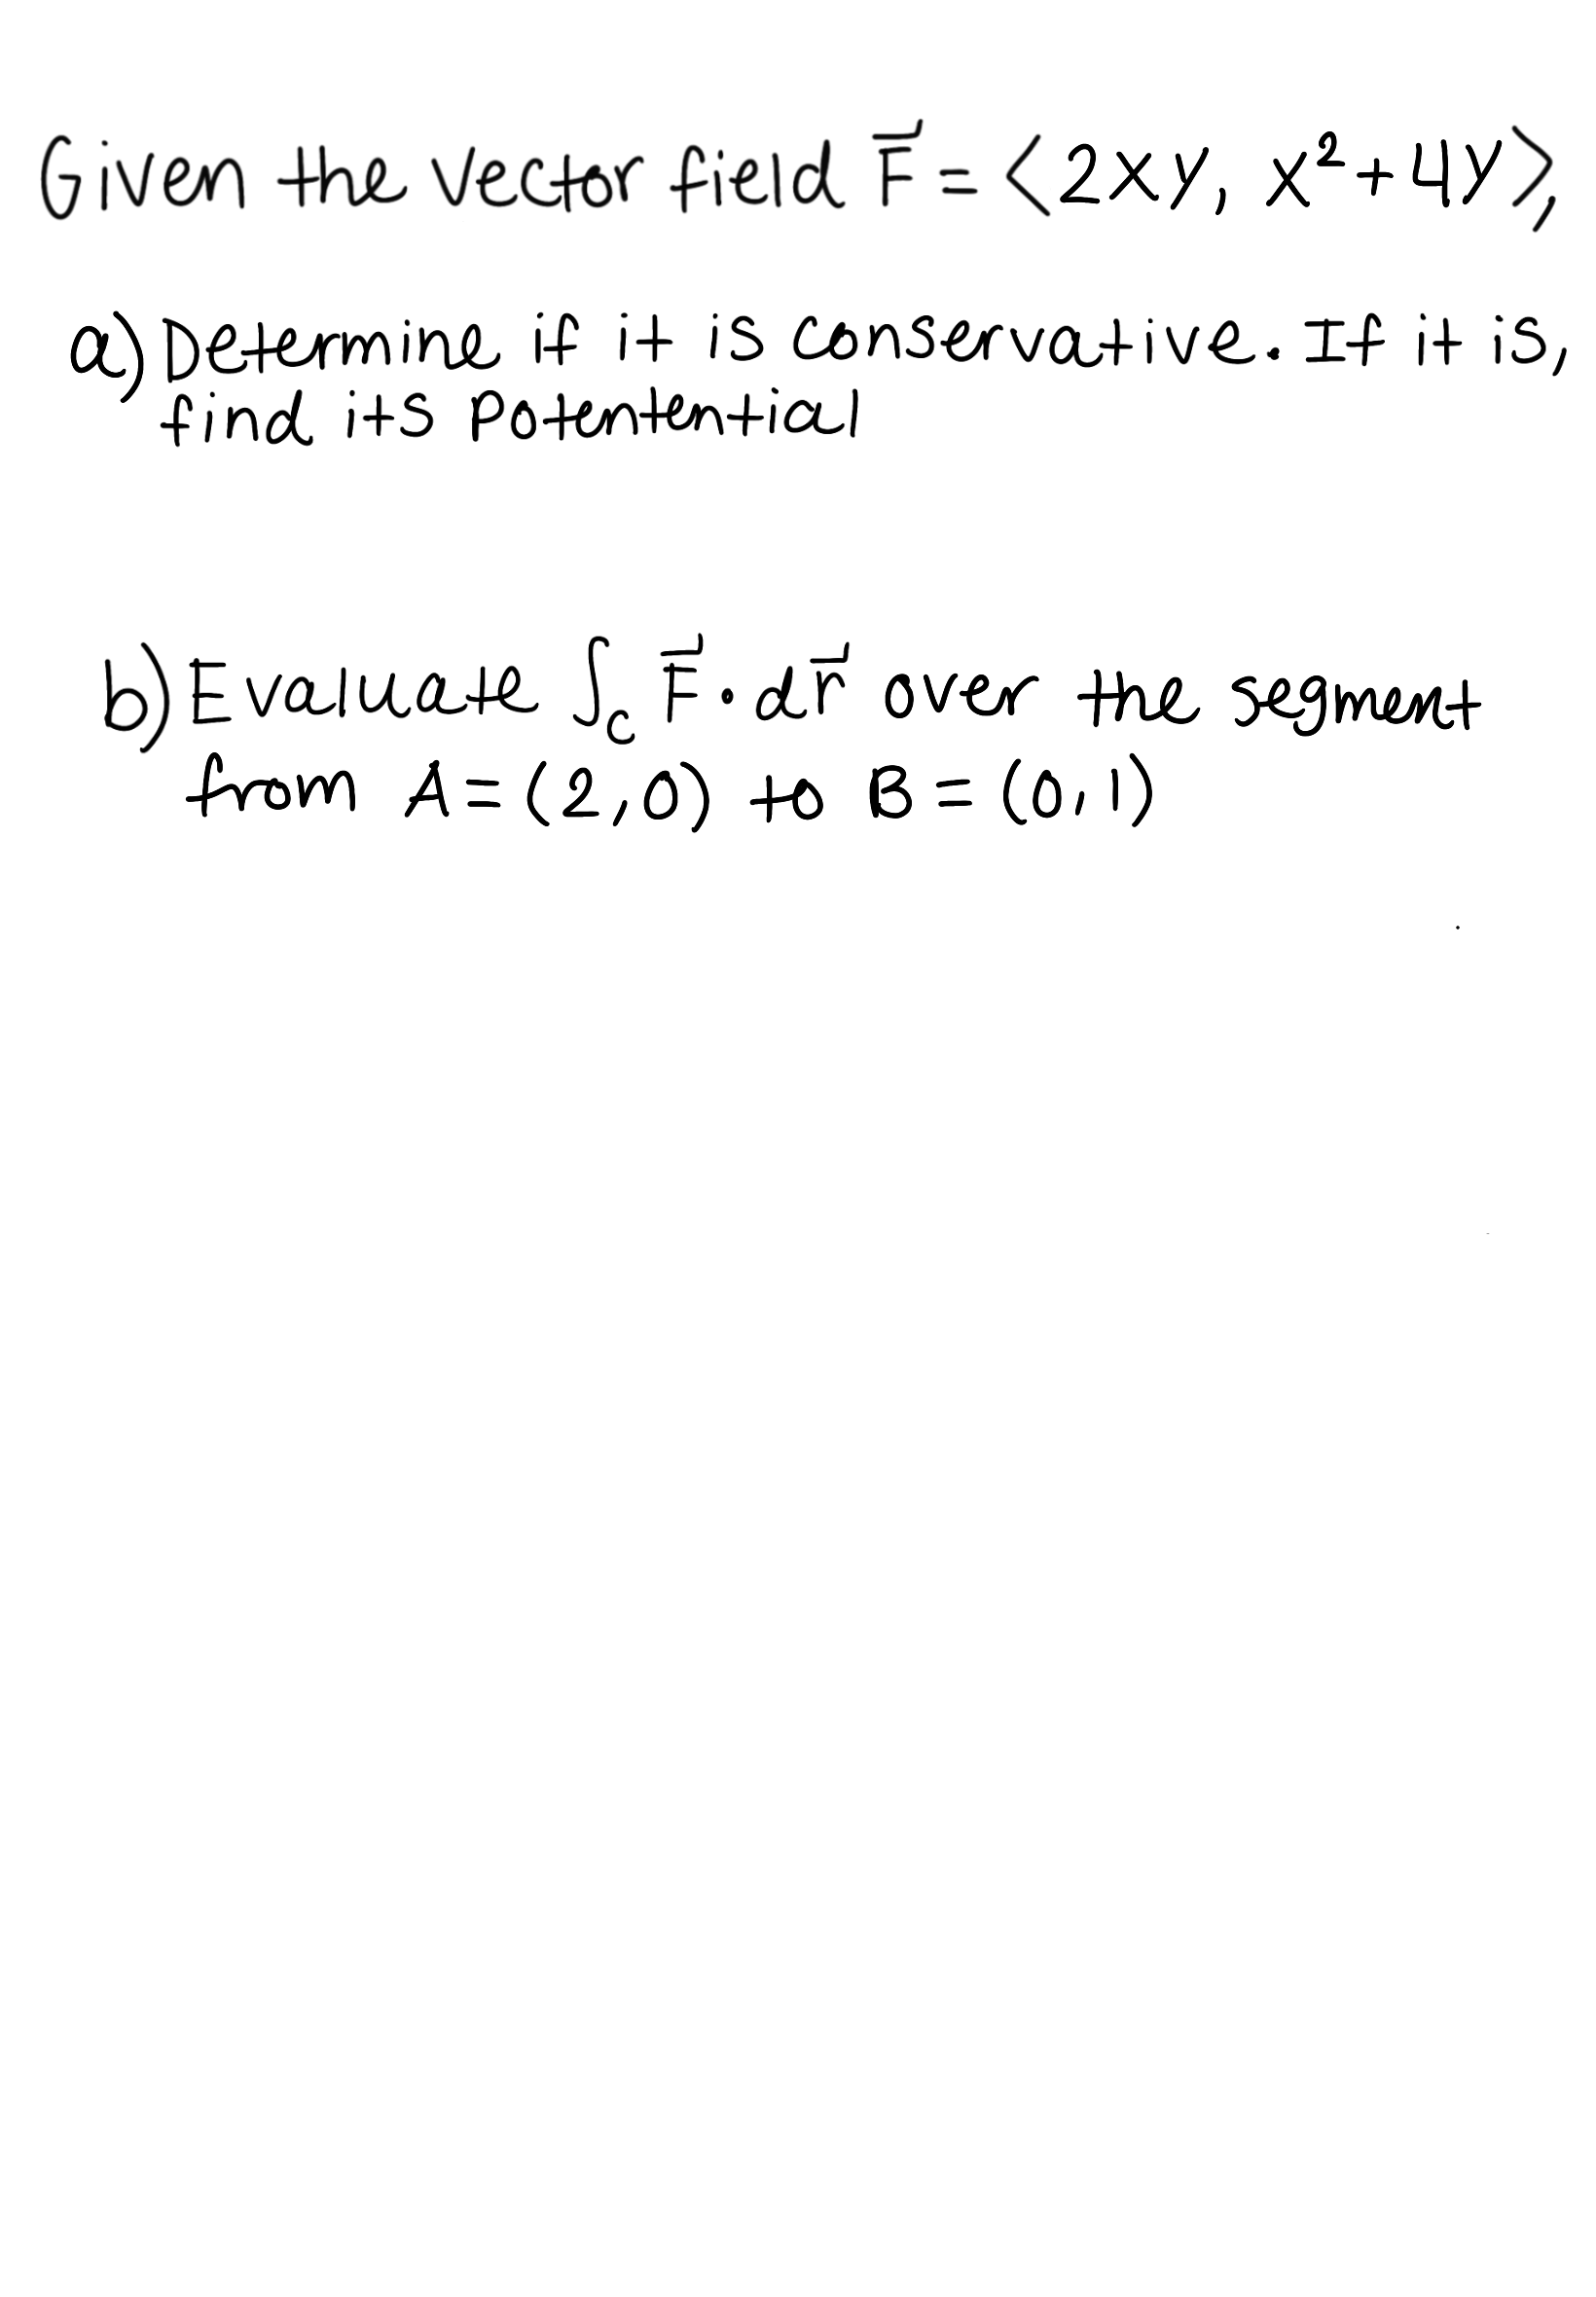 Given the vector field F⃗ = ⟨2xy, x²+4y⟩,
a) Determine if it is conservative. If it is,
find its potentential
b) Evaluate ∫_C F⃗ · dr⃗ over the segment
from A=(2,0) to B=(0,1)